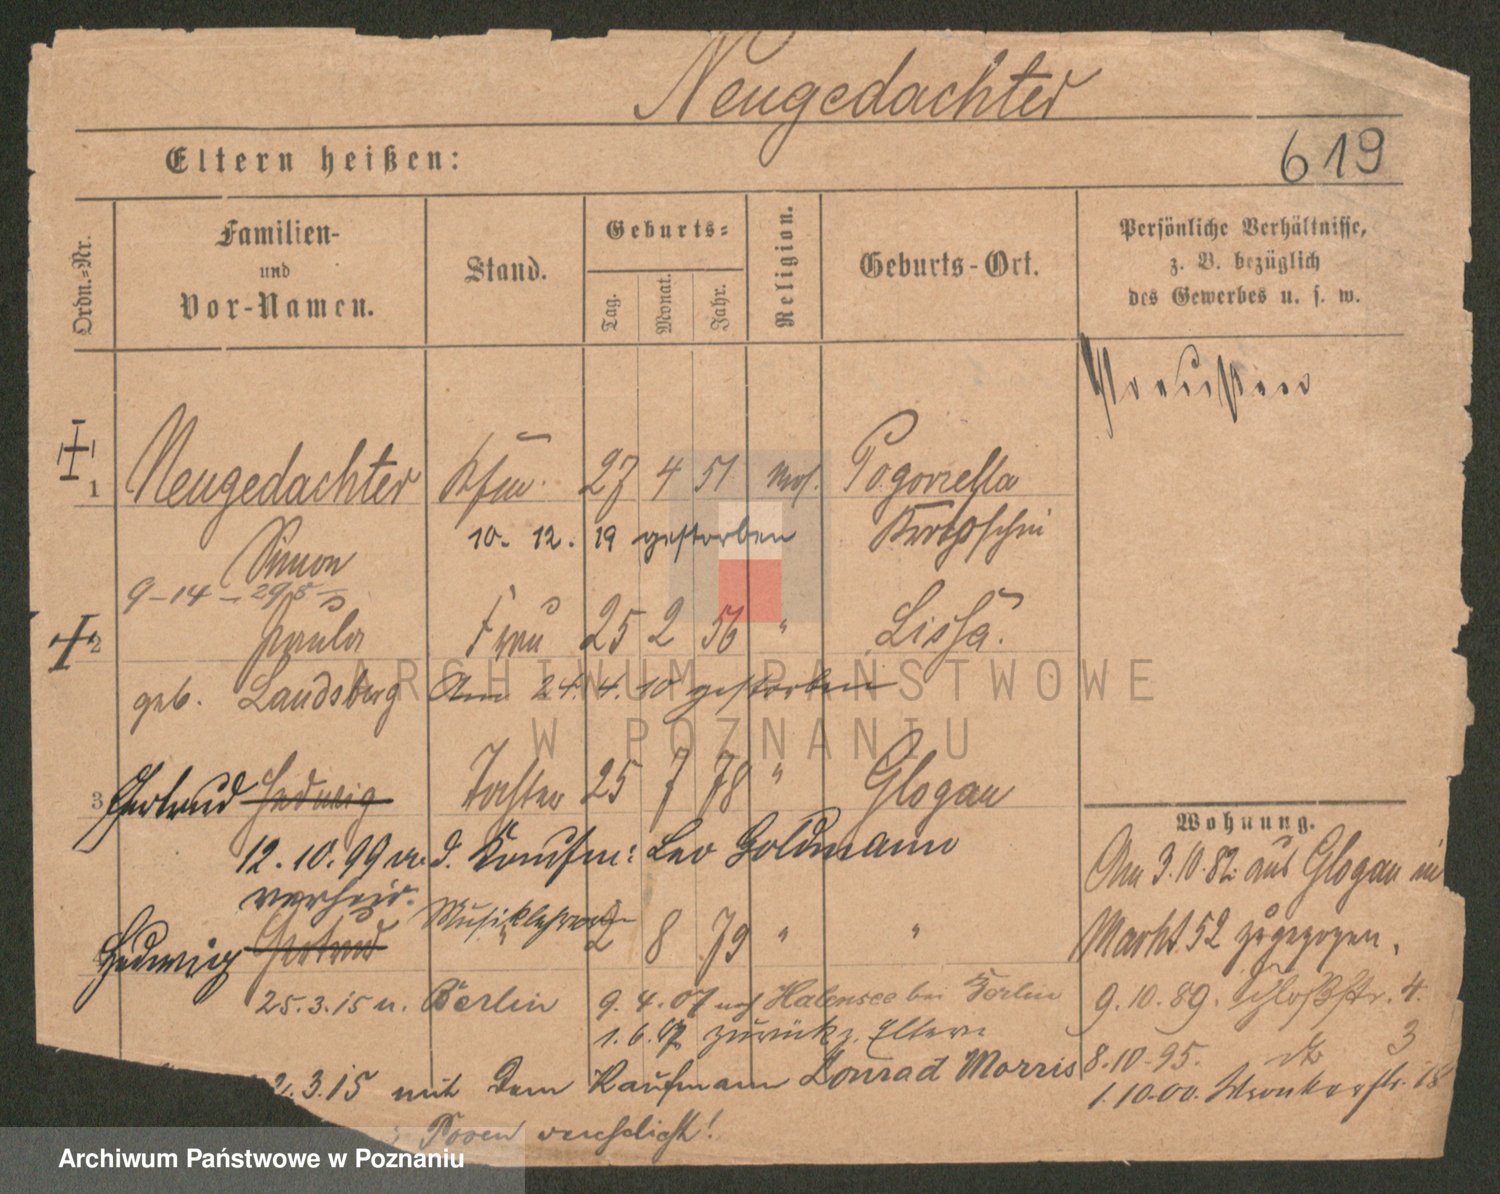 Neugedachter
619
Eltern heißen:
Ordn.-Nr.
Familien-
und
Vor-Namen.
Stand.
Geburts-
Tag.
Monat.
Jahr.
Religion.
Geburts-Ort.
Persönliche Verhältnisse,
z. B. bezüglich
des Gewerbes u. s. w.
Preußen
1 Neugedachter Kfm. 27 4 51 mos. Pogorzella
Simon 10. 12. 19 gestorben Krotoschin
9-14
2 Paula Frau 25 2 56 " Lissa.
geb. Landsberg Am 24. 4. 10 gestorben
3 Gertrud Hedwig Tochter 25 7 78 " Glogau
12. 10. 99 m. d. Kaufm: Leo Goldmann
verheir.
Hedwig Gertrud Musiklehrerin 2 8 79 " "
25. 3. 15 n. Berlin 9. 4. 07 nach Halensee bei Berlin
1. 6. 07 zurück z. Eltern
3. 15 mit dem Kaufmann Conrad Morris
Posen verehelicht!
Wohnung.
Am 3. 10. 82 aus Glogau in
Markt 52 zugezogen.
9. 10. 89. Schloßstr. 4.
8. 10. 95. do 3
1. 10. 00. Wronkerstr. 18
ARCHIWUM PAŃSTWOWE
W POZNANIU
Archiwum Państwowe w Poznaniu